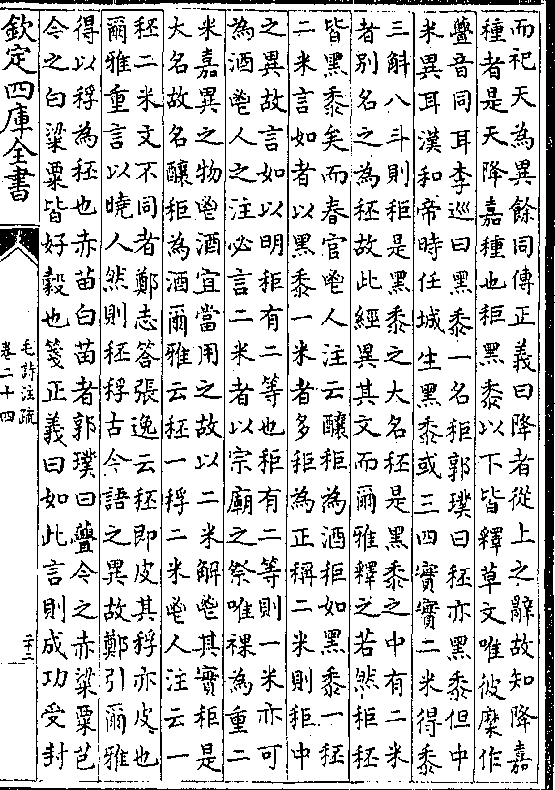 而祀天為異餘同傳正義曰降者從上之辭故知降嘉
種者是天降嘉種也秬黑黍以下皆釋草文唯彼穈作
虋音同耳李巡曰黑黍一名秬郭璞曰秠亦黑黍但中
米異耳漢和帝時任城生黑黍或三四實實二米得黍
三斛八斗則秬是黑黍之大名秠是黑黍之中有二米
者別名之為秠故此經異其文而爾雅釋之若然秬秠
皆黑黍矣而春官鬯人注云釀秬為酒秬如黑黍一秠
二米言如者以黑黍一米者多秬為正稱二米則秬中
之異故言如以明秬有二等也秬有二等則一米亦可
為酒鬯人之注必言二米者以宗廟之祭唯祼為重二
米嘉異之物鬯酒宜當用之故以二米解鬯其實秬是
大名故名釀秬為酒爾雅云秠一稃二米鬯人注云一
秠二米文不同者鄭志答張逸云秠即皮其稃亦皮也
爾雅重言以曉人然則秠稃古今語之異故鄭引爾雅
得以稃為秠也赤苗白苗者郭璞曰虋今之赤粱粟芑
今之白粱粟皆好穀也箋正義曰如此言則成功受封
欽定四庫全書
毛詩注疏
卷二十四
二十二